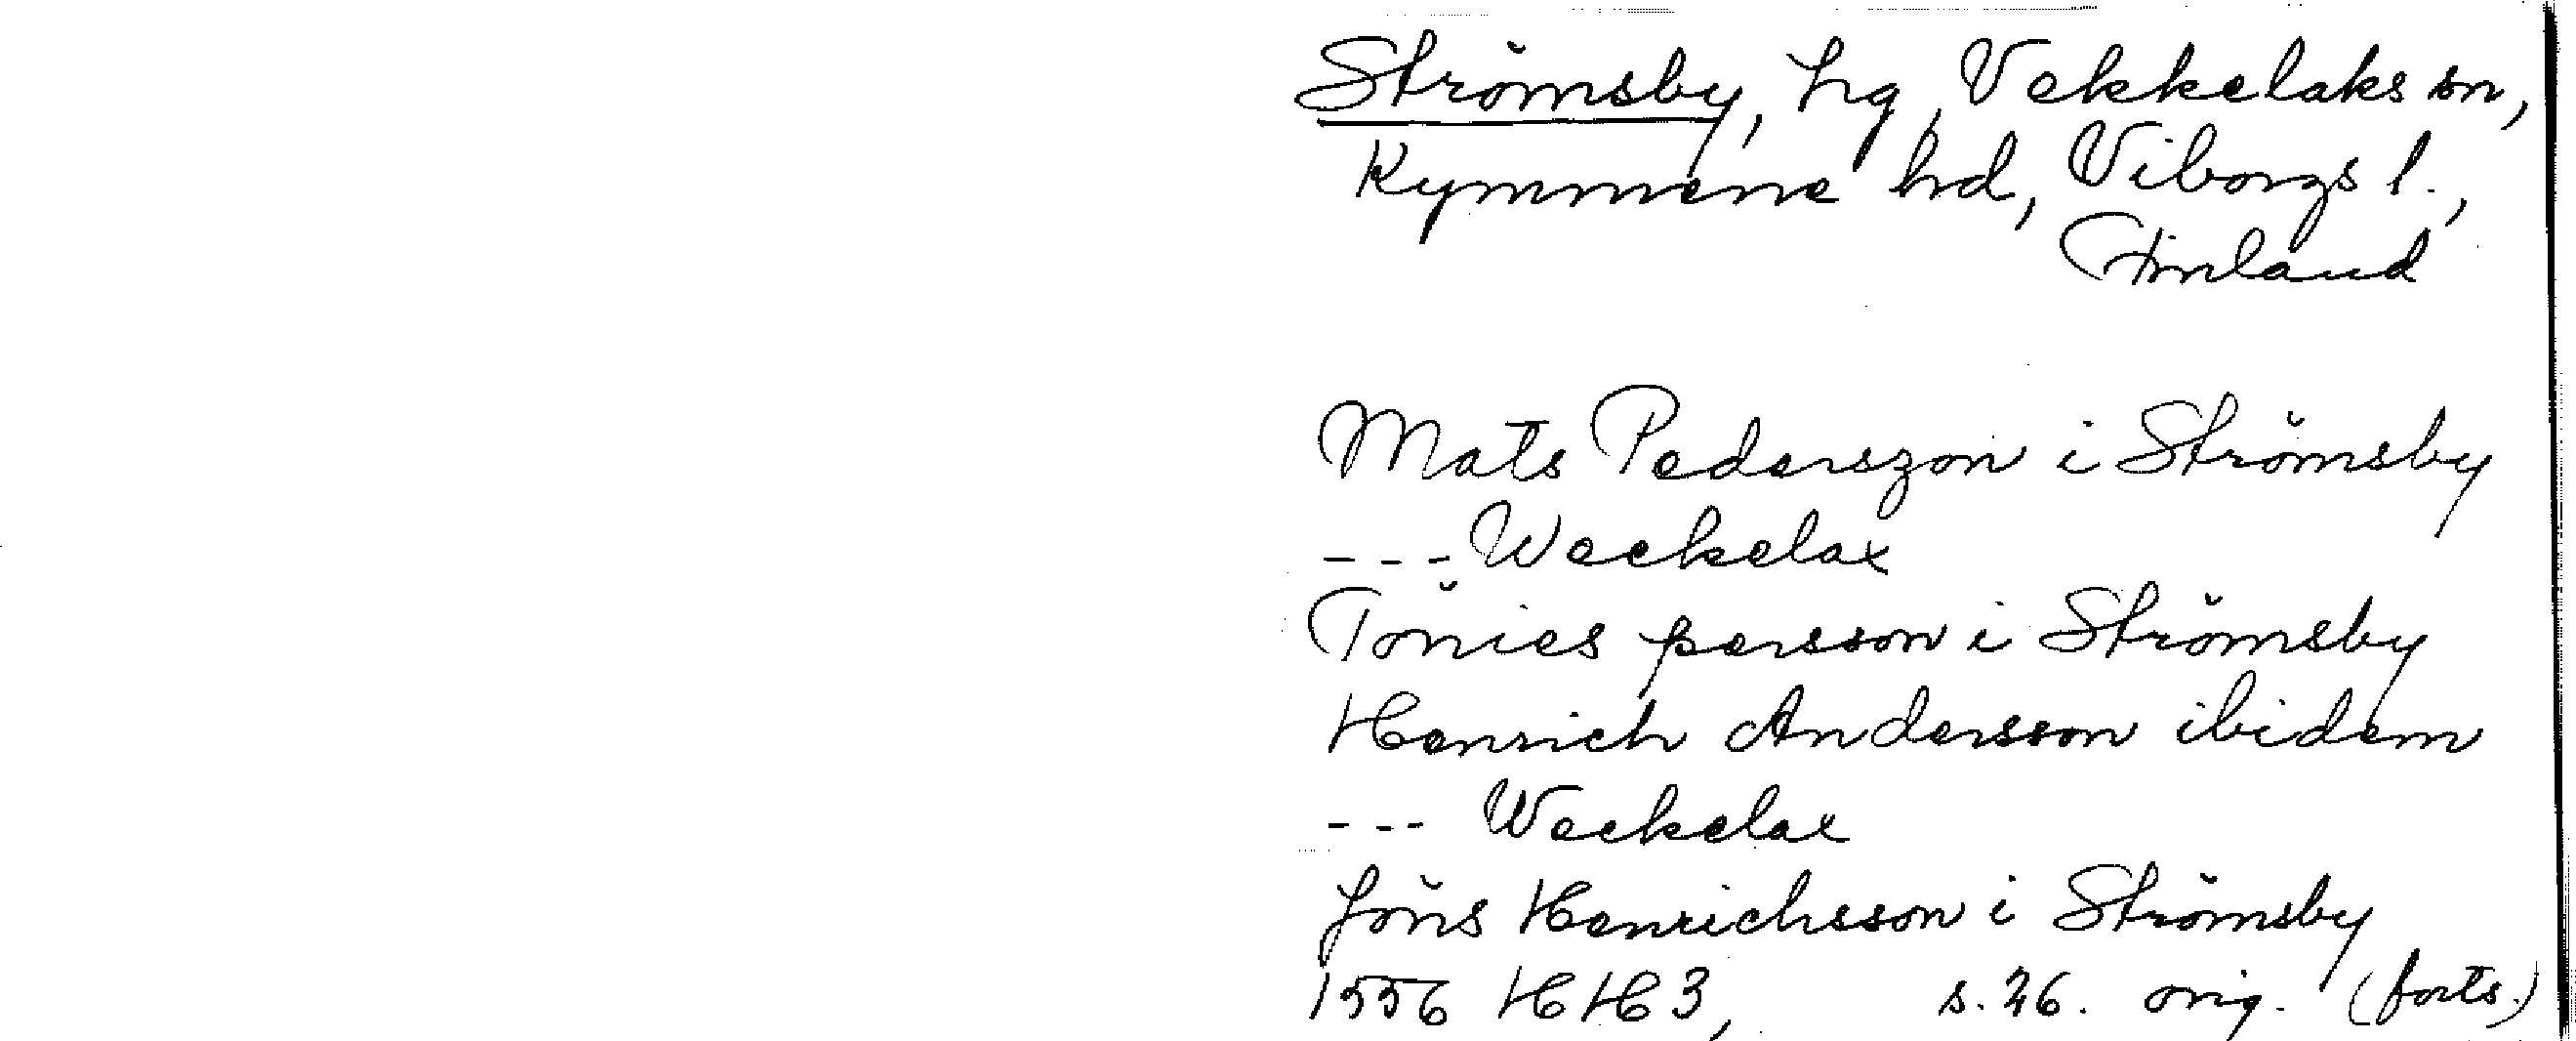 Strömsby, hg, Vekkelaks sn,
Kymmene hd, Viborgs l.,
Finland
Mats Pederszon i Strömsby
--- Weckelax
Tönies persson i Strömsby
Henrich Andersson ibidem
--- Weckelax
Jöns Henrichsson i Strömsby
1556 HH 3, s. 26. orig. (forts.)